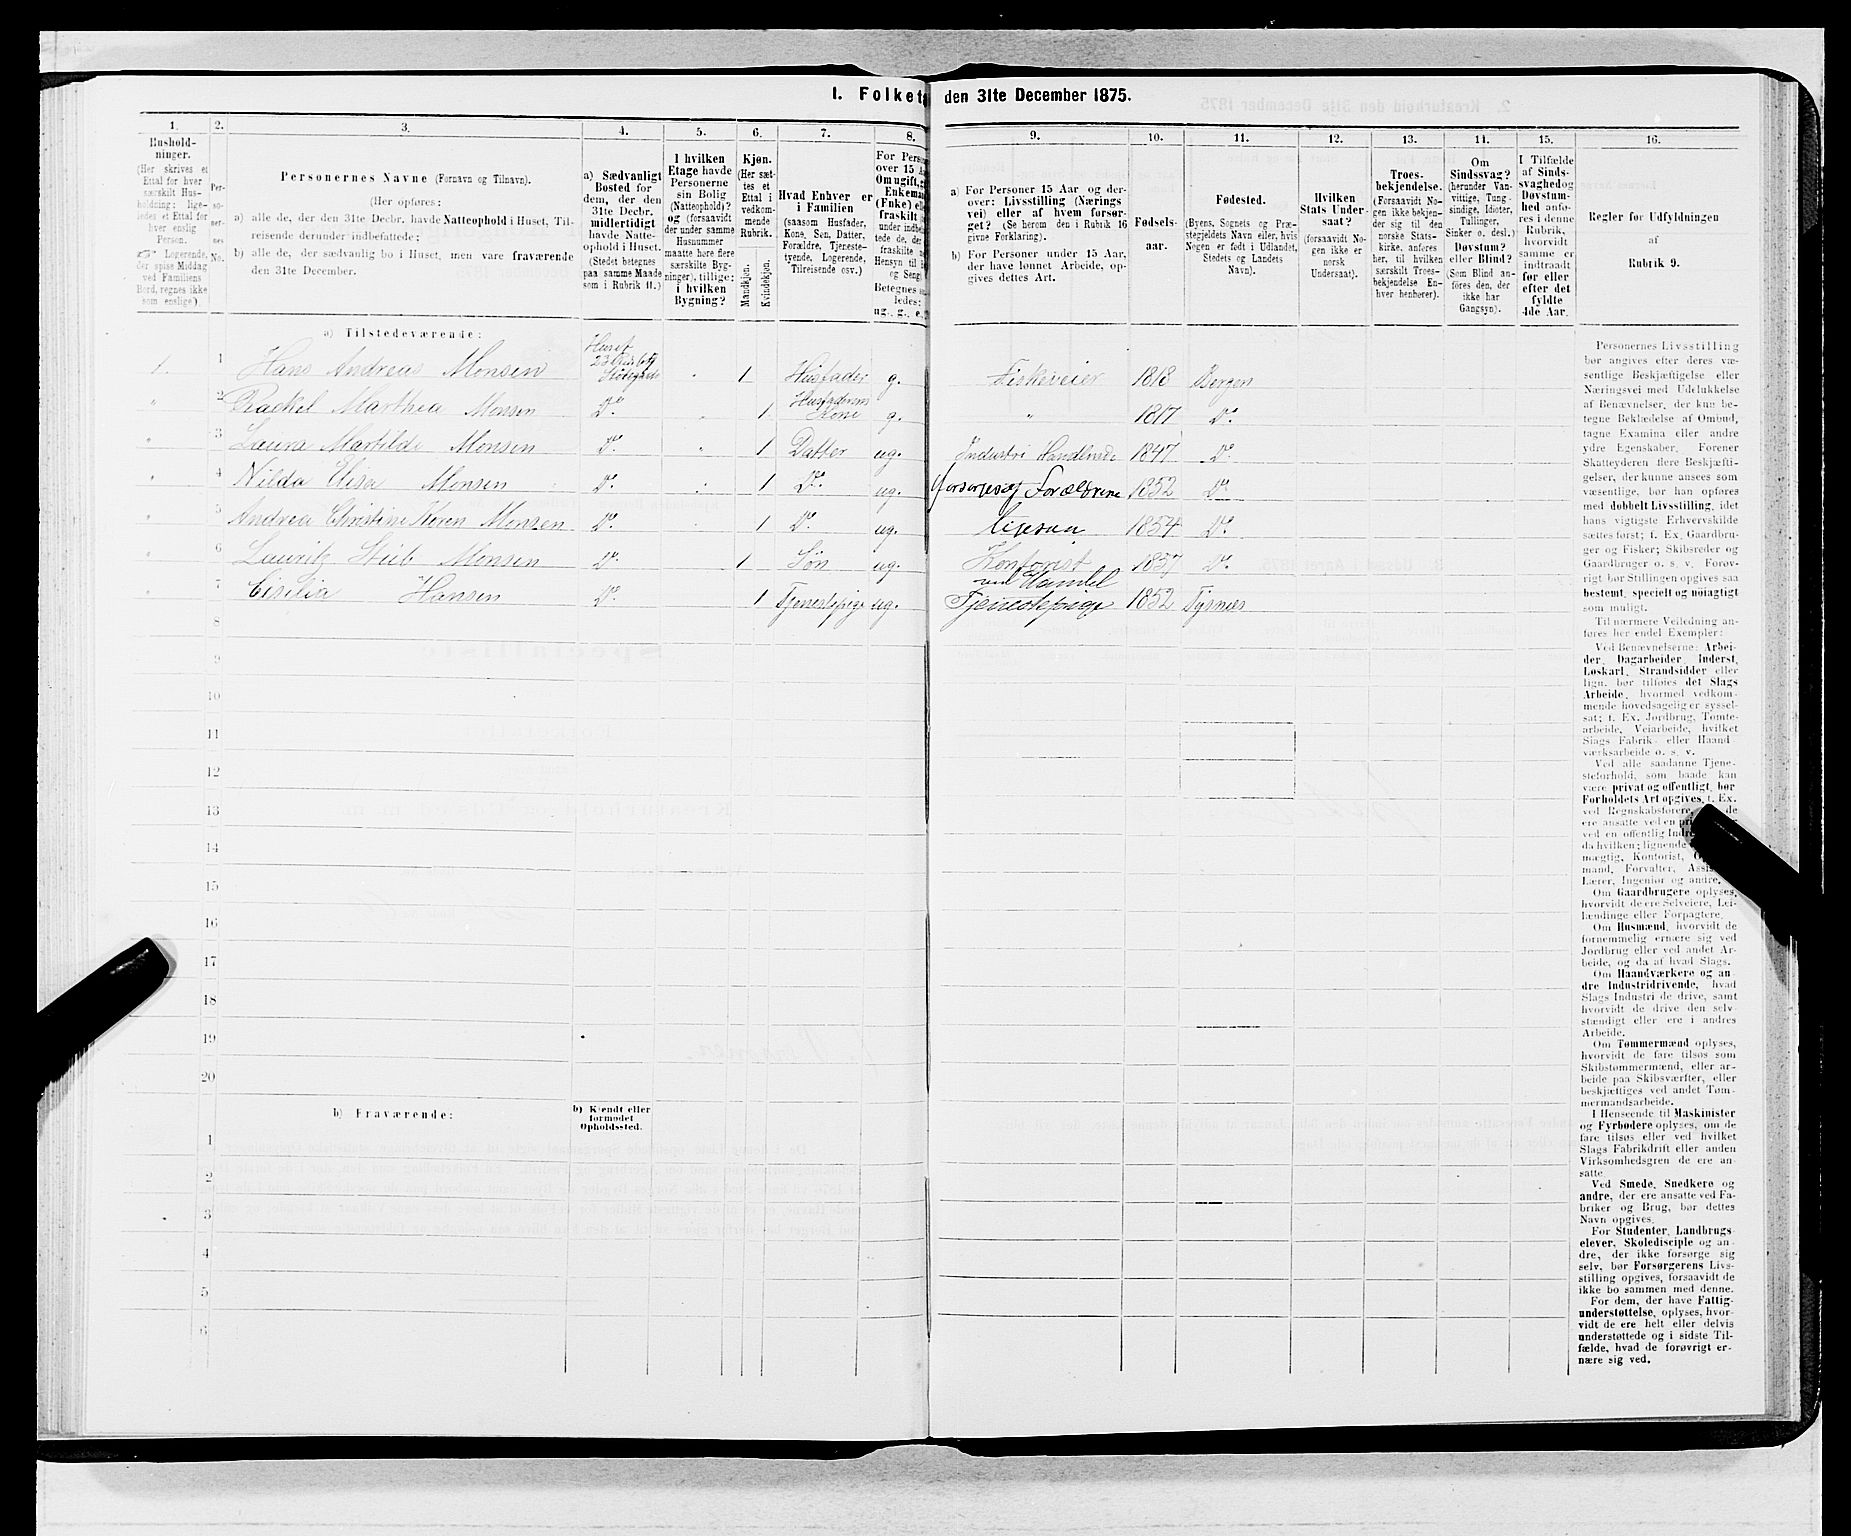 1. Folket den 31te December 1875.
1. 2. 3. 4. 5. 6. 7. 8. 9. 10. 11. 12. 13. 14. 15. 16.
Hushold-
ninger.
(Her skrives et
Ettal for hver
særskilt Hus-
holdning; lige-
ledes et Ettal for
hver enslig
Person.
Logerende,
der spise Middag
ved Familiens
Bord, regnes ikke
som enslige).
Per-
soner-
nes
No.
Personernes Navne (Fornavn og Tilnavn).
(Her opføres:
a) alle de, der den 31te Decbr. havde Natteophold i Huset, Til-
reisende derunder indbefattede;
b) alle de, der sædvanlig bo i Huset, men vare fraværende
den 31te December.
a) Sædvanligt
Bosted for
dem, der den
31te Decbr.
midlertidigt
havde Natte-
ophold i Huset.
(Stedet betegnes
paa samme Maade
som i Rubrik 11.)
I hvilken
Etage havde
Personerne
sin Bolig
(Natteophold)?
og (forsaavidt
der under samme
Husnummer
maatte høre flere
særskilte Byg-
ninger), tillige:
i hvilken
Bygning?
Kjøn.
(Her sæt-
tes et
Ettal i
vedkom-
mende
Rubrik.
Mandkjøn.
Kvindekjøn.
Hvad Enhver er
i Familien
(saasom Husfader,
Kone, Søn, Datter,
Forældre, Tjeneste-
tyende, Logerende,
Tilreisende osv.)
For Perso
over 15 A
Om ugift, g
Enkeman
(Enke) elle
fraskilt
under indbe
tede de, de
fraskilte
Hensyn til
og Seng
Betegnes s
ledes:
ug., g., e.,
a) For Personer 15 Aar og der-
over: Livsstilling (Nærings
vei) eller af hvem forsør-
get? (Se herom den i Rubrik 16
givne Forklaring).
b) For Personer under 15 Aar,
der have lønnet Arbeide, op-
gives dettes Art.
Fødsels-
aar.
Fødested.
(Byens, Sognets og Præ-
stegjeldets Navn eller, hvis
Nogen er født i Udlandet,
Stedets og Landets
Navn).
Hvilken
Stats Under-
saat?
(forsaavidt No-
gen ikke er
norsk
Undersaat).
Troes-
bekjendelse.
(Forsaavidt No-
gen ikke bekjen-
der sig til den
norske Stats-
kirke, anføres
her, til hvilken
særskilt Troes-
bekjendelse En-
hver henhører).
Om
Sindssvag?
(herunder Van-
vittige, Tung-
sindige, Idioter,
Tullinger,
Sinker o. desl.)
Døvstum?
eller Blind?
(Som Blind an-
føres den, der
ikke har
Gangsyn).
I Tilfælde
af Sinds-
svaghed og
Døvstum-
hed anfø-
res i denne
Rubrik,
hvorvidt
samme er
indtraadt
før eller
efter det
fyldte
4de Aar.
Regler for Udfyldningen
af
Rubrik 9.
a) Tilstedeværende:
1. 1 Hans Andreas Monsen Huset 23 1 Husfader g. 1818 Bergen
" 2 Rackel Marthea Monsen Do. " 1 Husfaderens Kone g. " 1817 Do.
" 3 Laura Martilde Monsen Do. " 1 Datter ug. Industri Handlende 1847 Do.
" 4 Nilda Elisa Monsen Do. " 1 Do. ug. forsørges af Forældrene 1852 Do.
" 5 Andrea Christine Koren Monsen Do. 1 Do. ug. ligesaa 1854 Do.
" 6 Lauritz Stub Monsen Do. 1 Søn ug. Kontorist ved Handel 1857 Do.
" 7 Cisilia Hansen Do. 1 Tjenestepige ug. Tjenestepige 1852 Tysnæs
8
9
10
11
12
13
14
15
16
17
18
19
20
b) Fraværende:
b) Kjendt eller
formodet
Opholdssted.
1
2
3
4
5
6
Personernes Livsstilling
bør angives efter deres væ-
sentlige Beskjæftigelse eller
Næringsvei med Udelukkelse
af Benævnelser, der kun be-
tegne Beklædelse af Ombud,
tagne Examina eller andre
ydre Egenskaber. Forener
Skatteyderen flere Beskjæfti-
gelser, der kunne ansees som
væsentlige, bør han opføres
med dobbelt Livsstilling, idet
hans vigtigste Erhvervskilde
sættes først; f. Ex. Gaardbru-
ger og Fisker; Skibsreder og
Gaardbruger o. s. v. Forøv-
rigt bør Stillingen opgives saa
bestemt, specielt og nøiagtigt
som muligt.
Til nærmere Veiledning an-
føres her endel Exempler:
Ved Benævnelserne: Arbei-
der, Dagarbeider, Inderst,
Løskarl, Strandsidder eller
lign. bør tilføies det Slags
Arbeide, hvormed vedkom-
mende hovedsagelig er syssel-
sat; f. Ex. Jordbrug, Tomte-
arbeide, Veiarbeide, hvilket
Slags Fabrik- eller Haand-
værksarbeide o. s. v.
Ved alle saadanne Tjene-
steforhold, som baade kan
være privat og offentligt, bør
Forholdets Art opgives, f. Ex.
ved Regnskabsførere,  de
ere ansatte ved en pri
ved en offentlig Indre
da hvilken; lignende
mægtig, Kontorist, O
mand, Forvalter, Assis
Lærer, Ingeniør og andre.
Om Gaardbrugere oplyses,
hvorvidt de ere Selveiere, Lei-
lændinge eller Forpagtere.
Om Husmænd, hvorvidt de
fornemmelig ernære sig ved
Jordbrug eller ved andet Ar-
beide, og da af hvad Slags.
Om Haandværkere og an-
dre Industridrivende, hvad
Slags Industri de drive, samt
hvorvidt de drive den selv-
stændigt eller ere i andres
Arbeide.
Om Tømmermænd oplyses,
hvorvidt de fare tilsøs som
Skibstømmermænd, eller ar-
beide paa Skibsværfter, eller
beskjæftiges ved andet Tøm-
mermandsarbeide.
I Henseende til Maskinister
og Fyrbødere oplyses, om de
fare tilsøs eller ved hvilket
Slags Fabrikdrift eller anden
Virksomhedsgren de ere an-
satte.
Ved Smede, Snedkere og
andre, der ere ansatte ved Fa-
briker og Brug, bør dettes
Navn opgives.
For Studenter, Landbrugs-
elever, Skoledisciple og an-
dre, der ikke forsørge sig
selv, bør Forsørgerens Livs-
stilling opgives, forsaavidt de
ikke bo sammen med denne.
For dem, der have Fattig-
understøttelse, oplyses, hvor-
vidt de ere helt eller delvis
understøttede og i sidste Til-
fælde, hvad de forøvrigt er-
nære sig ved.